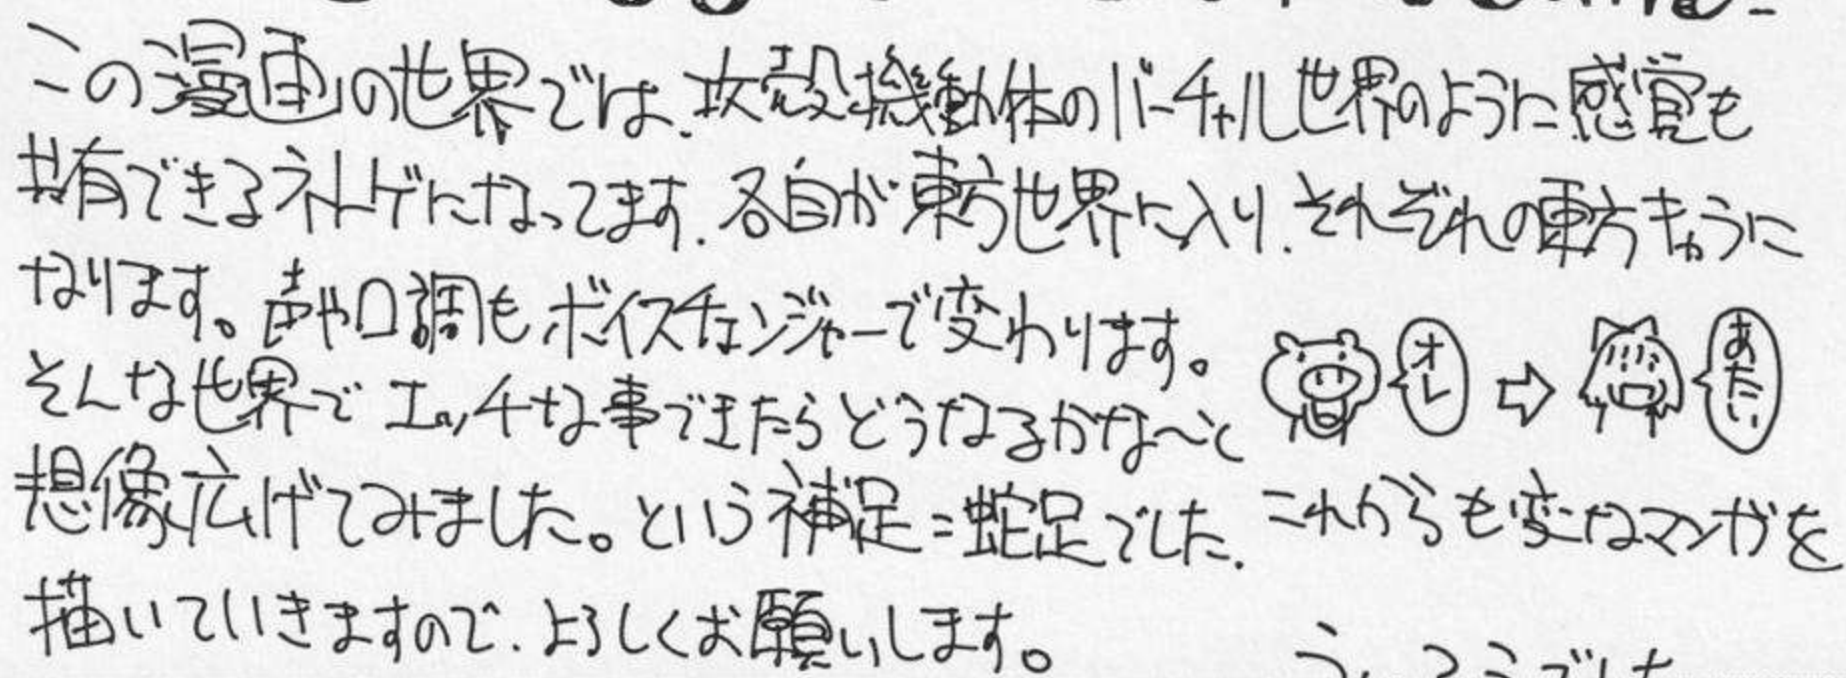 この漫画の世界では、攻殻機動体のバーチャル世界のように感覚も
共有できるネトゲになってます。各自が東方世界に入り、それぞれの東方キャラに
なります。声や口調もボイスチェンジャーで変わります。
オレ ⇨ あたい
そんな世界でエッチな事できたらどうなるかな〜と
想像広げてみました。という補足=蛇足でした。これからも変なマンガを
描いていきますので、よろしくお願いします。
でした